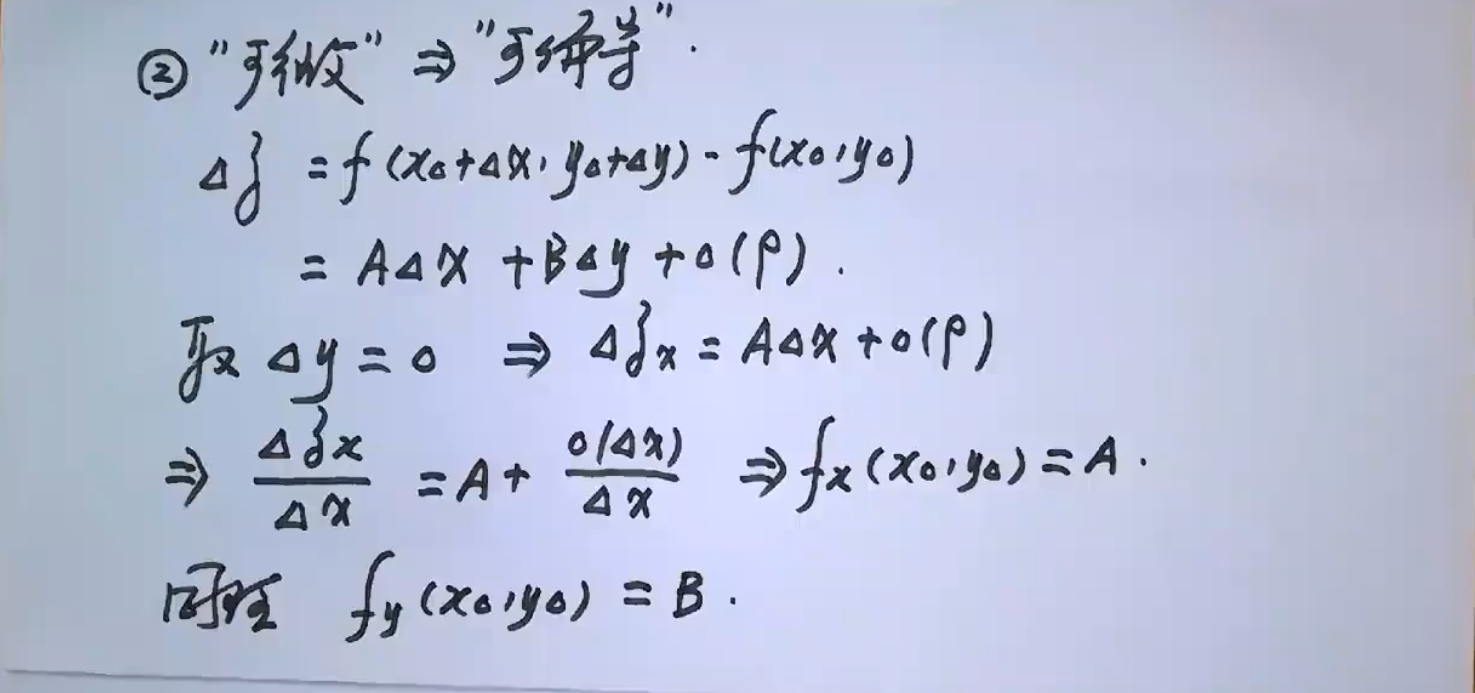 ② "可微" ⇒ "可偏导".
Δz = f(x₀+Δx, y₀+Δy) - f(x₀,y₀)
= AΔx + BΔy + o(ρ).
取 Δy = 0 ⇒ Δzx = AΔx + o(ρ)
⇒ Δzx/Δx = A + o(Δx)/Δx ⇒ fx(x₀,y₀) = A.
同理 fy(x₀,y₀) = B.